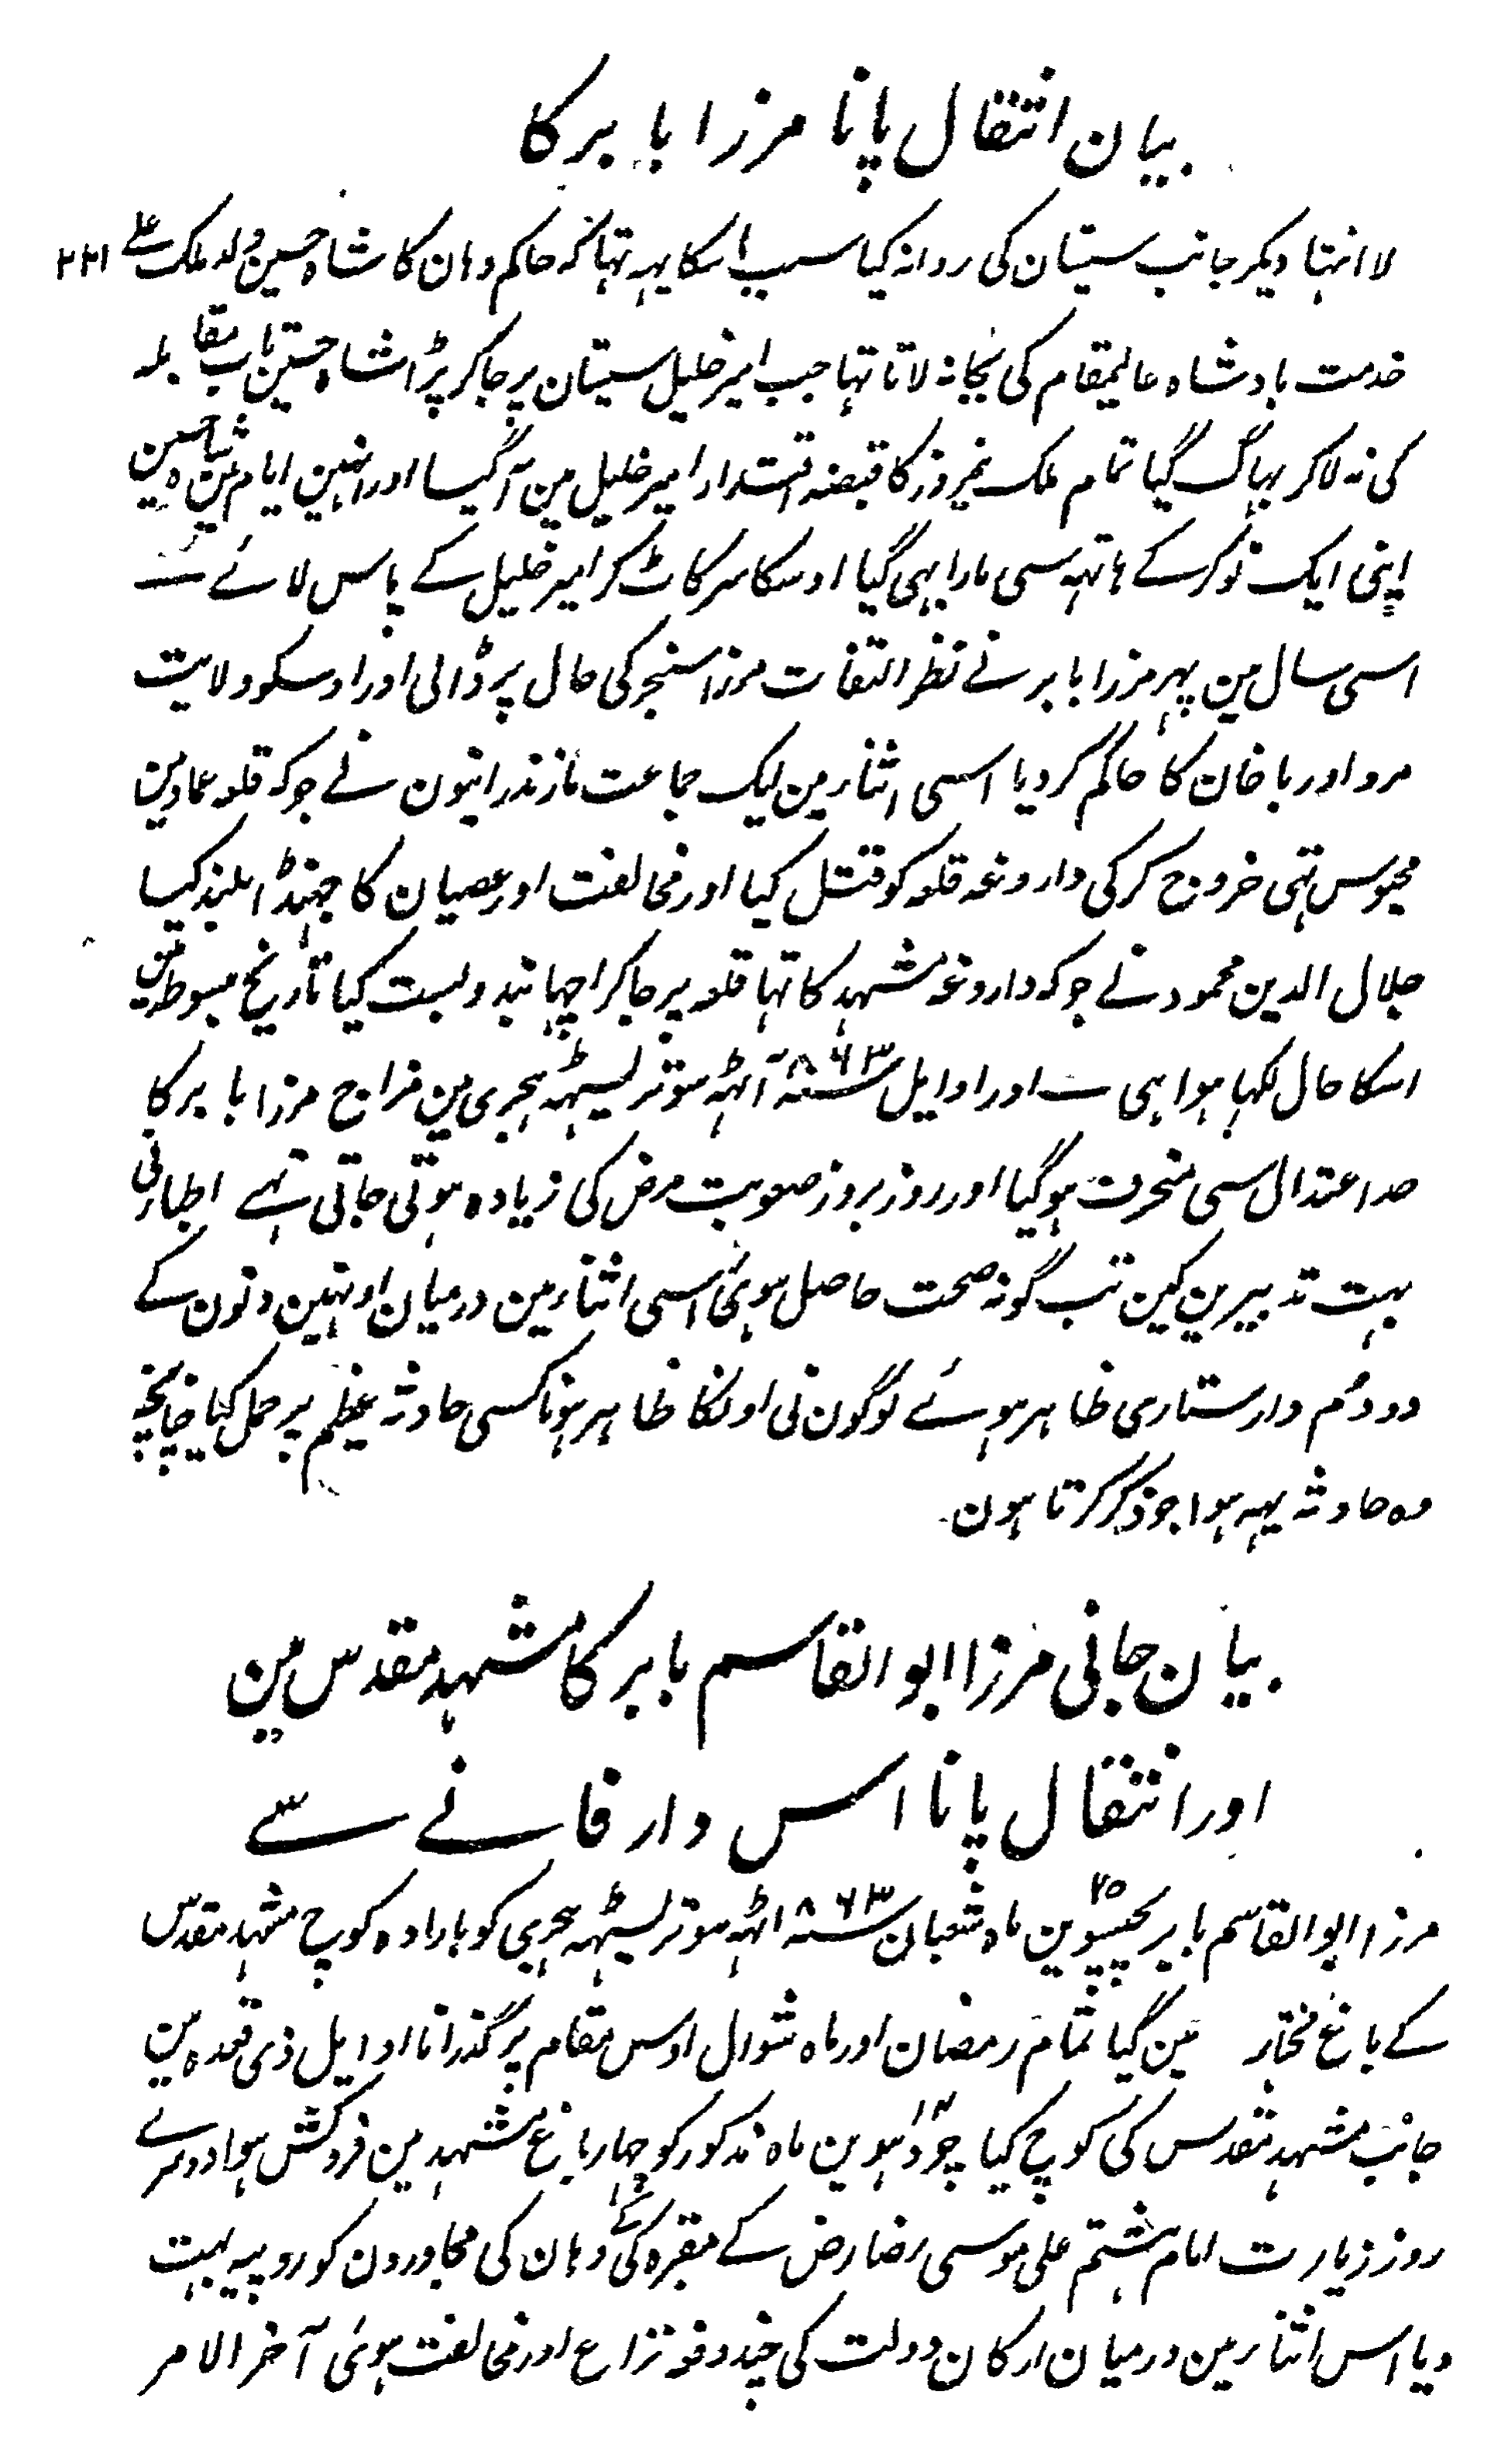 بیان انتقال پانا مرزا بابر کا
لا انتہا دیکر جانب سیستان کی روانہ کیا سبب اسکا یہہ تہا کہ حاکم وہان کا شاہ حسین ولد ملک علے ۲۳۱
خدمت بادشاہ عالیمقام کی بجا نہ لاتا تہا جب امیر خلیل سیستان پر جا کر پڑا شاہ حسین تاب مقابلہ
کی نہ لا کر بہاگ گیا تمام ملک نیمروز کا قبضہ اقتدار امیر خلیل مین آ گیا اور انہین ایام مین شاہ حسین
اپنی ایک نوکر کے ہاتہہ سی مارا بہی گیا اوسکا سر کاٹ کر امیر خلیل کے پاس لائے
اسی سال مین پہر مرزا بابر نے نظر التفات مرزا سنجر کی حال پر ڈالی اور اوسکو ولایت
مرو اور باخان کا حاکم کر دیا اسی اثنا مین ایک جماعت مازندرانیون نے جو کہ قلعہ عماد مین
محبوس تہی خروج کر کی داروغہ قلعہ کو قتل کیا اور مخالفت اور عصیان کا جہنڈا بلند کیا
جلال الدین محمود نے جو کہ داروغہ مشہد کا تہا قلعہ پر جا کر اچہا بندوبست کیا تاریخ مبسوط مین
اسکا حال لکہا ہوا ہی اور اوایل سنہ ۸۶۳ آٹہہ سو ترلیسٹہہ ہجری مین مزاج مرزا بابر کا
حد اعتدال سی منحرف ہو گیا اور روز بروز صعوبت مرض کی زیادہ ہوتی جاتی تہے اطبا نی
بہت تدبیرین کین تب گونہ صحت حاصل ہوئی اسی اثنا مین درمیان اونہین دنون کے
دو دُم دار ستاری ظاہر ہوئے لوگون نی اونکا ظاہر ہونا کسی حادثہ عظیم پر حمل کیا چنانچہ
وہ حادثہ یہہ ہوا جو ذکر کرتا ہون
بیان جانی مرزا ابو القاسم بابر کا مشہد مقدس مین
اور انتقال پانا اس دار فانے سے
مرزا ابو القاسم بابر پچیسوین ۲۵ ماہ شعبان سنہ ۸۶۳ اٹہہ سو ترلیسٹہہ ہجری کو بارادہ کوچ مشہد مقدس
کے باغ مختار مین گیا تمام رمضان اور ماہ شوال اوس مقام پر گذرانا اوایل ذی قعدہ مین
جانب مشہد مقدس کی کوچ کیا چودہوین ۱۴ ماہ مذکور کو چہار باغ مشہد مین فروکش ہوا دوسرے
روز زیارت امام ہشتم علی موسی رضا رض کے مقبرہ کی کے وہان کی مجاورون کو روپیہ بہت
دیا اس اثنا مین درمیان ارکان دولت کی چند دفعہ نزاع اور مخالفت ہوئی آخر الامر